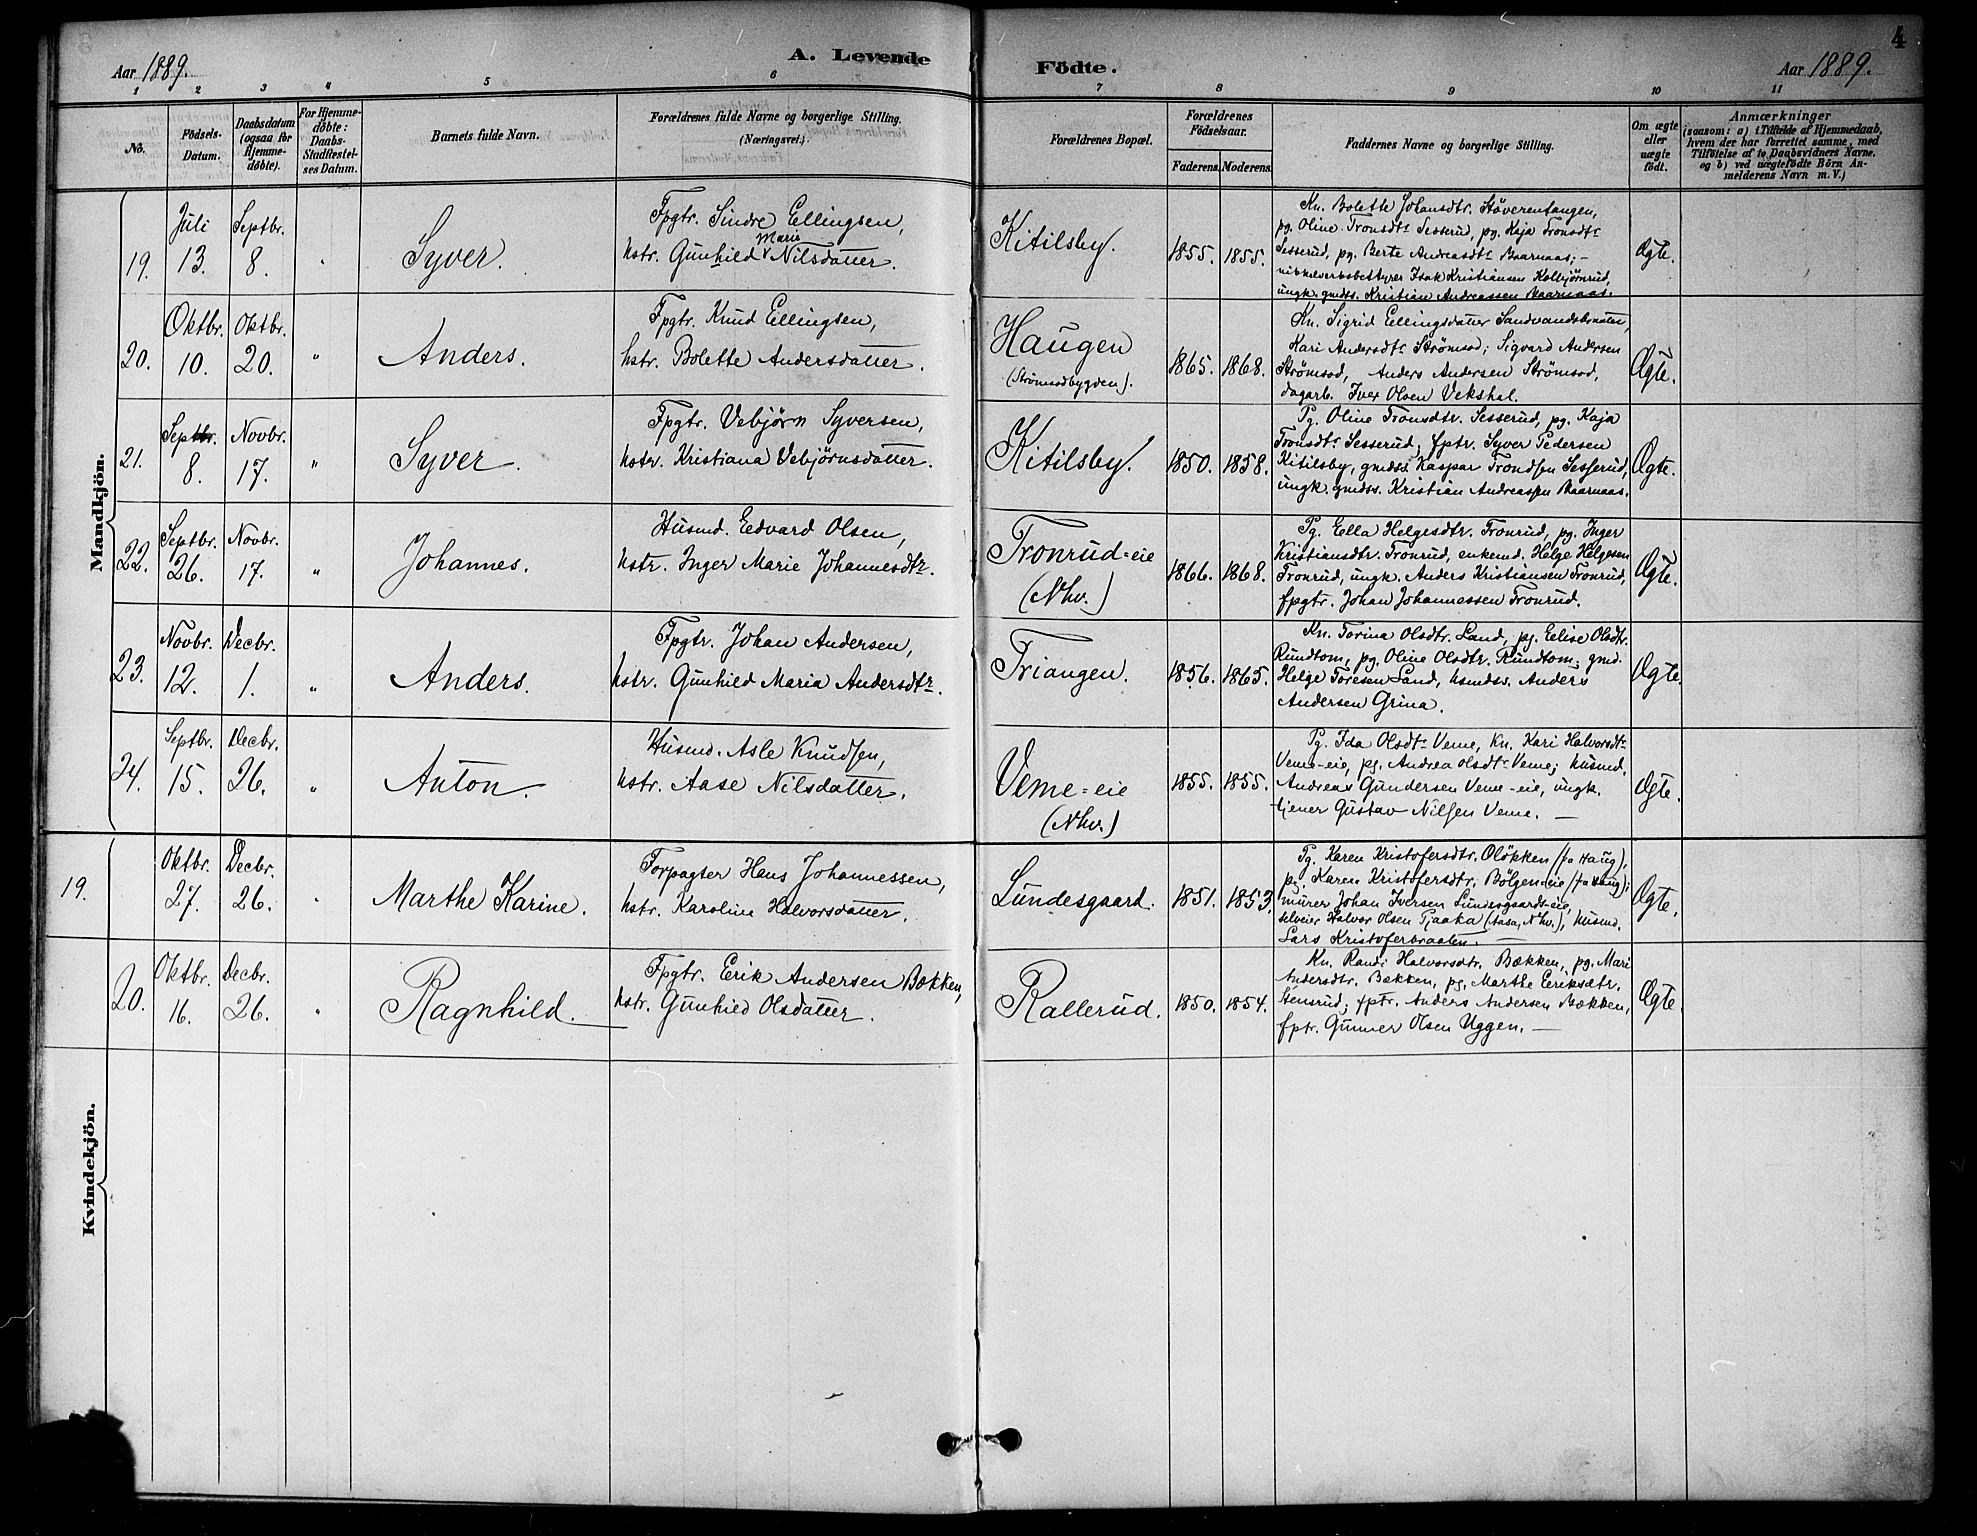 4
Aar 1889.
A. Levende
Födte.
Aar 1889.
1 2 3 4 5 6 7 8 9 10 11
No.
Födsels-
Datum.
Daabsdatum
(ogsaa for
Hjemme-
döbte).
For Hjemme-
döbte:
Daabs-
Stadfæstel-
ses Datum.
Barnets fulde Navn.
Forældrenes fulde Navne og borgerlige Stilling.
(Næringsvei.)
Forældrenes Bopæl.
Forældrenes
Födselsaar.
Faderens. Moderens.
Faddernes Navne og borgerlige Stilling.
Om ægte
eller
uægte
födt.
Anmærkninger
(saasom: a) i Tilfælde af Hjemmedaab,
hvem der har forrettet samme, med
Tilföielse af to Daabsvidners Navne.
og b) ved uægtefödte Börn An-
melderens Navn m. V.)
Mandkjön.
19.
Juli
13.
Septbr.
8.
"
Syver.
Fpgtr. Sindre Ellingsen,
hstr. Gunhild Marie Nilsdatter.
Kitilsby.
1855. 1855.
Kn. Bolette Johansdtr. Støverentangen,
pg. Oline Tronsdtr Sesserud, pg. Kaja Tronsdtr
Sesserud, pg. Berte Andreasdtr Baarnaas; -
Isak Kristiansen Kolbjørnrud,
ungk. gmdss. Kristian Andreassen Baarnaas.
Ægte.
20.
Oktbr.
10.
Oktbr.
20.
"
Anders.
Fpgtr. Knud Ellingsen,
hstr. Bolette Andersdatter.
Haugen
(Strømsodbygden).
1865. 1868.
Kn. Sigrid Ellingsdatter Sandvandsbraaten,
Kari Andersdtr Strømsod; Sigvard Andersen
Strømsod, Anders Andersen Strømsod,
dagarb. Iver Olsen Vekshal.
Ægte.
21.
Septbr.
8.
Novbr.
17.
"
Syver.
Fpgtr. Vebjörn Syversen,
hstr. Kristiana Vebjörnsdatter.
Kitilsby.
1850. 1858.
Pg. Oline Tronsdtr. Sesserud, pg. Kaja
Tronsdtr Sesserud; fptr. Syver Pedersen
Kitilsby, gmdss. Kaspar Trondsen Sesserud,
ungk. gmdss. Kristian Andreassen Baarnaas.
Ægte.
22.
Septbr.
26.
Novbr.
17.
"
Johannes.
Husmd. Edvard Olsen,
hstr. Inger Marie Johannesdtr.
Tronrud=eie
(Nhv.)
1866. 1868.
Pg. Ella Helgesdtr. Tronrud, pg. Inger
Kristiansdtr. Tronrud, enkemd. Helge Helgesen
Tronrud, ungk. Anders Kristiansen Tronrud,
fpgtr. Johan Johannessen Tronrud.
Ægte.
23.
Novbr.
12.
Decbr.
1.
"
Anders.
Fpgtr. Johan Andersen,
hstr. Gunhild Maria Andersdtr.
Triangen.
1856. 1865.
Kn. Torina Olsdtr. Land, pg. Elise Olsdtr.
Rundtom, pg. Oline Olsdtr. Rundtom; gmd.
Helge Toresen Land, hsmdss. Anders
Andersen Grina.
Ægte.
24.
Septbr.
15.
Decbr.
26.
"
Anton.
Husmd. Asle Knudsen,
hstr. Aase Nilsdatter.
Veme=eie
(Nhv.)
1855. 1855.
Pg. Ida Olsdtr Veme, kn. Kari Halvorsdtr
Veme-eie, pg. Andrea Olsdtr Veme; husmd.
Andreas Gundersen Veme-eie, ungk.
tjener Gustav Nilsen Veme. —
Ægte.
Kvindekjön.
19.
Oktbr.
27.
Decbr.
26.
"
Marthe Karine.
Forpagter Hans Johannessen,
hstr. Karoline Halvorsdatter.
Lundesgaard.
1851. 1853.
Pg. Karen Kristofersdtr. Oløkken (fa Haug),
pg. Karen Kristofersdtr. Bölgen-eie (fa Haug);
murer Johan Iversen Lundesgaards-eie,
selveier Halvor Olsen Tjaaka (Aasa, Nhv.), husmd.
Lars Kristoferbraaten. —
Ægte.
20.
Oktbr.
16.
Decbr.
26.
"
Ragnhild.
Fpgtr. Erik Andersen Bækken,
hstr. Gunhild Olsdatter.
Rallerud.
1850. 1854.
Kn. Randi Halvorsdtr. Bækken, pg. Mari
Andersdtr. Bækken, pg. Marthe Eriksdtr.
Stensrud; fptr. Anders Andersen Bækken,
fptr. Gunner Olsen Uggen. —
Ægte.